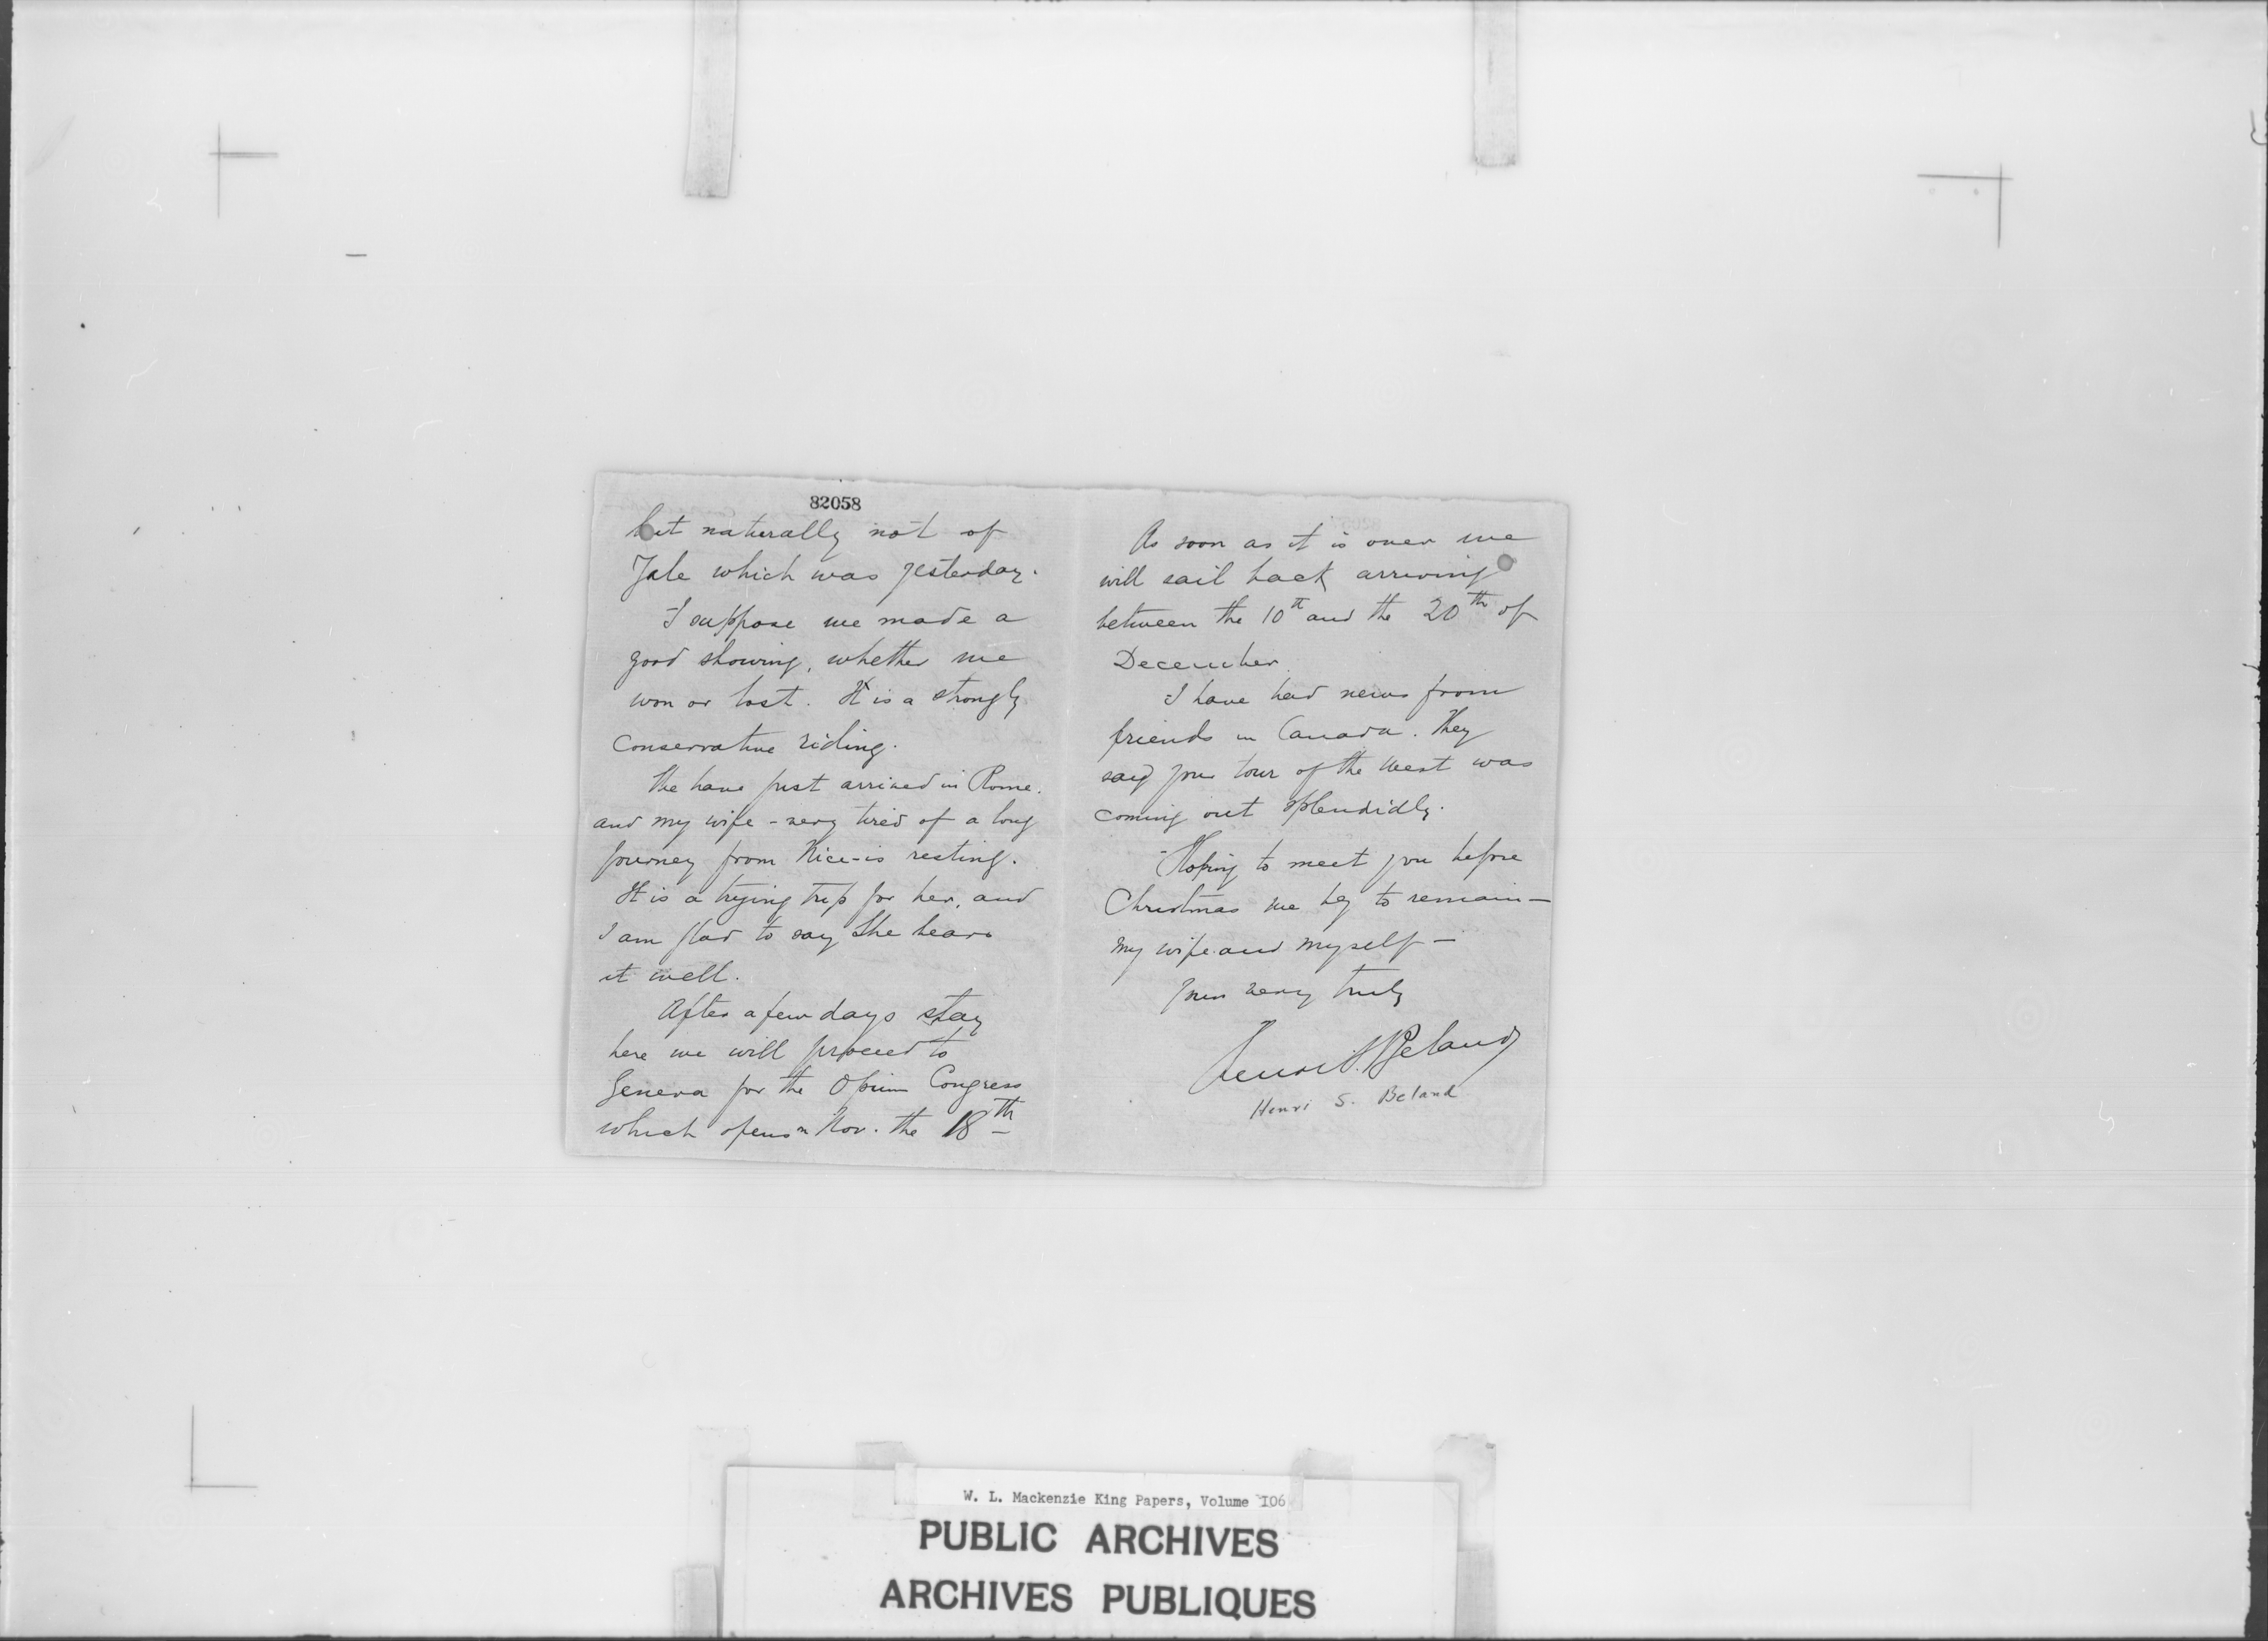 82058
but naturally not of
Yale which was yesterday.
I suppose we made a
good showing, whether we
won or lost. It is a strongly
conservative riding.
We have just arrived in Rome.
and my wife - very tired of a long
journey from Nice - is resting.
It is a trying trip for her, and
I am glad to say she bears
it well.
After a few days stay
here we will proceed to
Geneva for the Opium Congress
which opens on Nov. the 18th
As soon as it is over we
will sail back arriving
between the 10th and the 20th of
December.
I have had news from
friends in Canada. They
say your tour of the West was
coming out splendidly.
Hoping to meet you before
Christmas we beg to remain —
my wife and myself —
Yours very truly
Henri S. Beland
Henri S. Beland
W. L. Mackenzie King Papers, Volume 106
PUBLIC ARCHIVES
ARCHIVES PUBLIQUES